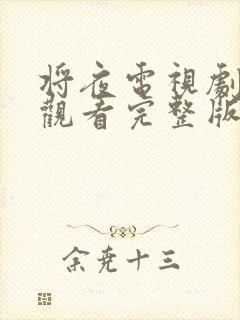 將夜電視劇
觀看完整版
余堯十三